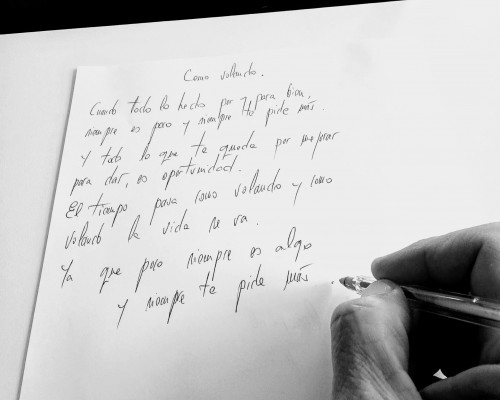 Como volando.
Cuando todo lo hecho por y para bien,
siempre es poco y siempre te pide más.
y todo lo que te queda por mejorar
para dar, es oportunidad.
El tiempo pasa como volando y como
volando la vida se va.
Ya que poco siempre es algo
y siempre te pide más.